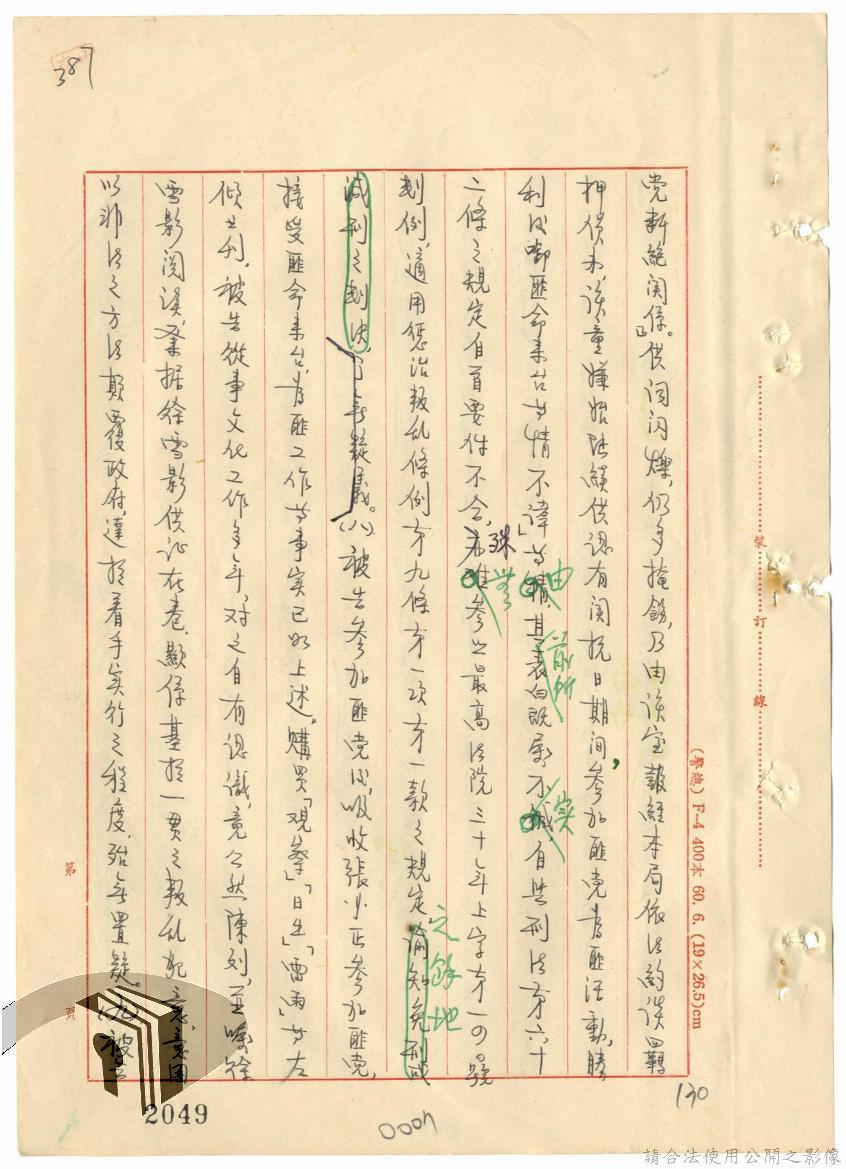 387
党斷絕関係。」供詞閃爍,仍多掩飾,乃由該室報經本局依法約談四羈
押偵办,該童嫌始陸續供認有関抗日期间,參加匪党為匪活動,勝
利后啣匪命來台等情不諱」等情,其表白既屬不誠自與刑法第六十
由
前所
实
二條之規定自首要件不合,亦難參照最高法院三十年上字第一四號
殊
無
判例,適用惩治叛乱條例第九條第一项第一款之規定諭知免刑或
之餘地
減刑之判決,了無疑義。(八)被告參加匪党后,吸收張以正參加匪党,
接受匪命來台,為匪工作等事实已如上述。購買「观察」「日出」「雷雨」等左
傾書刊,被告從事文化工作多年,对之自有認識,竟公然陳列,並囑徐
雪影阅读,業据徐雪影供证在卷,顯係基於一貫之叛乱犯意,意图
以非法之方法颠覆政府,達於着手实行之程度,殆無置疑。(九)被告
第 頁
裝 訂 線
(警總) F-4 400本 60. 6. (19×26.5)cm
130
2049
0007
請合法使用公開之影像